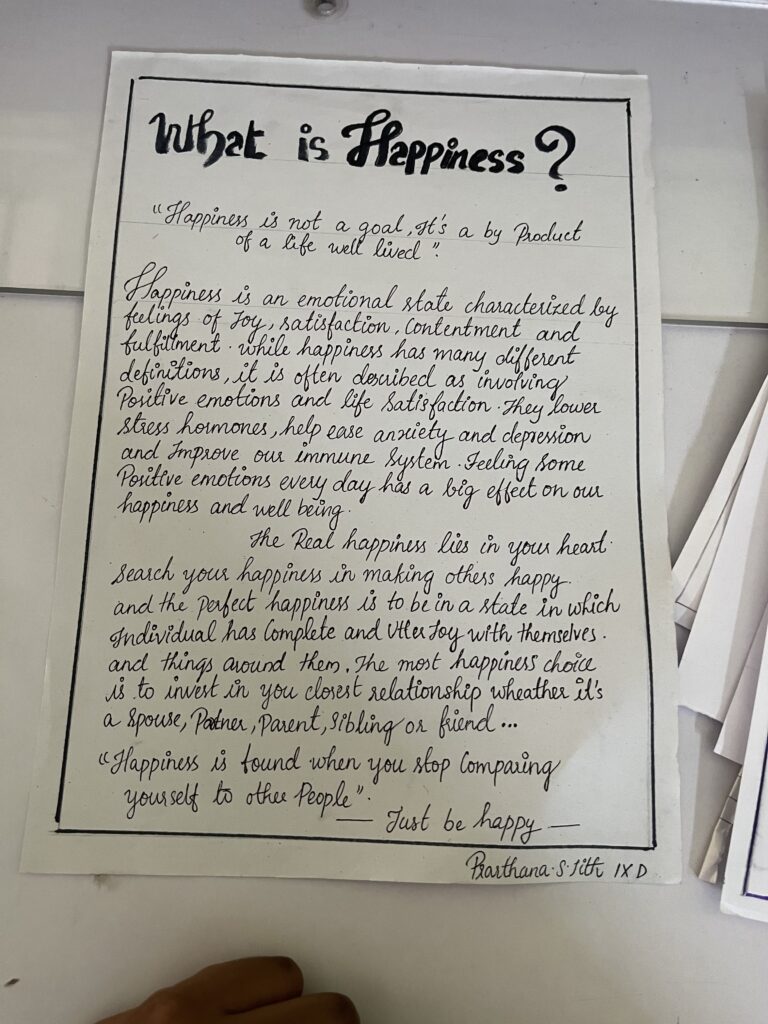 What is Happiness?
"Happiness is not a goal, It's a by Product
of a life well lived".
Happiness is an emotional state characterized by
feelings of Joy, satisfaction, Contentment and
fulfillment. while happiness has many different
definitions, it is often described as involving
Positive emotions and life Satisfaction. They lower
stress hormones, help ease anxiety and depression
and Improve our immune System. Feeling Some
Positive emotions every day has a big effect on our
happiness and well being.
The Real happiness lies in your heart.
Search your happiness in making others happy.
and the Perfect happiness is to be in a state in which
Individual has Complete and Utter Joy with themselves.
and things around them. The most happiness choice
is to invest in you closest relationship wheather it's
a Spouse, Partner, Parent, Sibling or friend...
"Happiness is found when you stop Comparing
yourself to other People".
— Just be happy —
Prarthana.S.Jith IX D